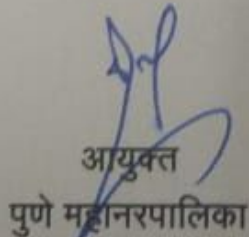 आयुक्त
पुणे महानरपालिका